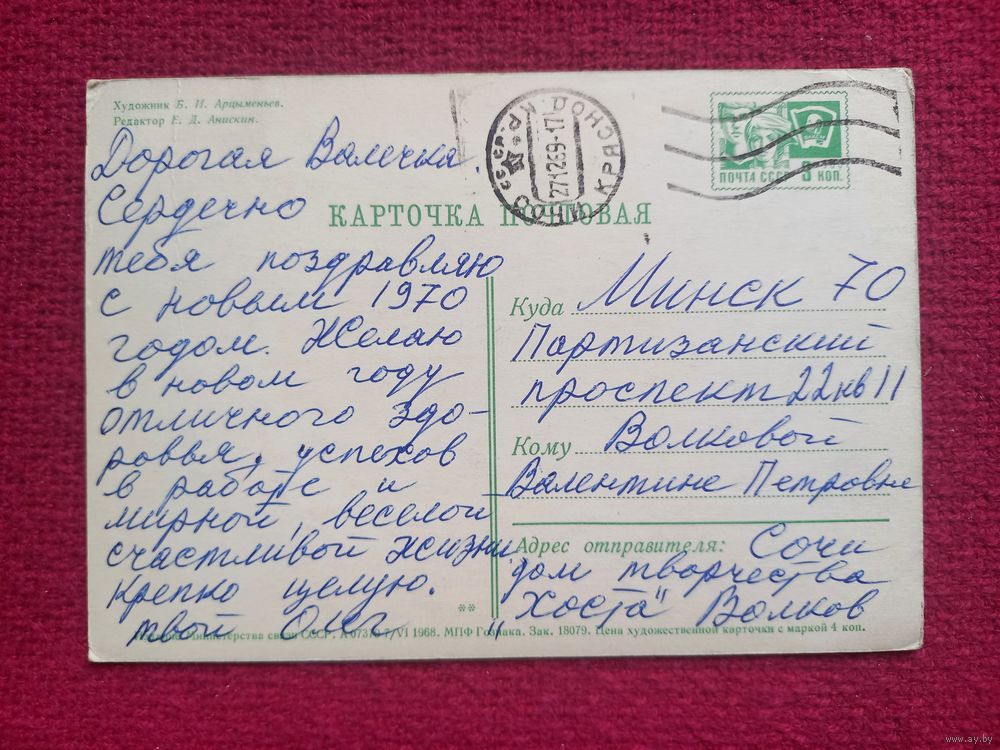 Художник Б. И. Арцыменьев.
Редактор Е. Д. Анискин.
ПОЧТА СССР 3 КОП.
СССР
КРАСНОД. КР.
271269-17
КАРТОЧКА ПОЧТОВАЯ
Дорогая Валечка.
Сердечно
тебя поздравляю
с новым 1970
годом. Желаю
в новом году
отличного здо-
ровья, успехов
в работе и
мирной, веселой
счастливой жизни.
Крепко целую.
твой Олег
Куда Минск 70
Партизанский
проспект 22 кв 11
Кому Волковой
Валентине Петровне
Адрес отправителя: Сочи
дом творчества
"Хоста" Волков
**
Министерства связи СССР. А 07370 7/VI 1968. МПФ Гознака. Зак. 18079. Цена художественной карточки с маркой 4 коп.
www.ay.by